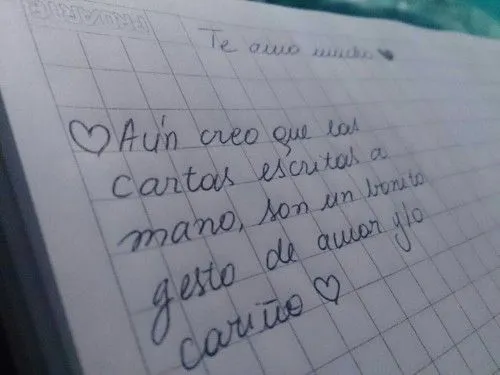 Te amo mucho ♥
♡ Aún creo que las
cartas escritas a
mano, son un bonito
gesto de amor y/o
cariño ♡